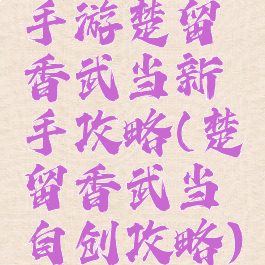 手游楚留
香武当新
手攻略(楚
留香武当
自创攻略)